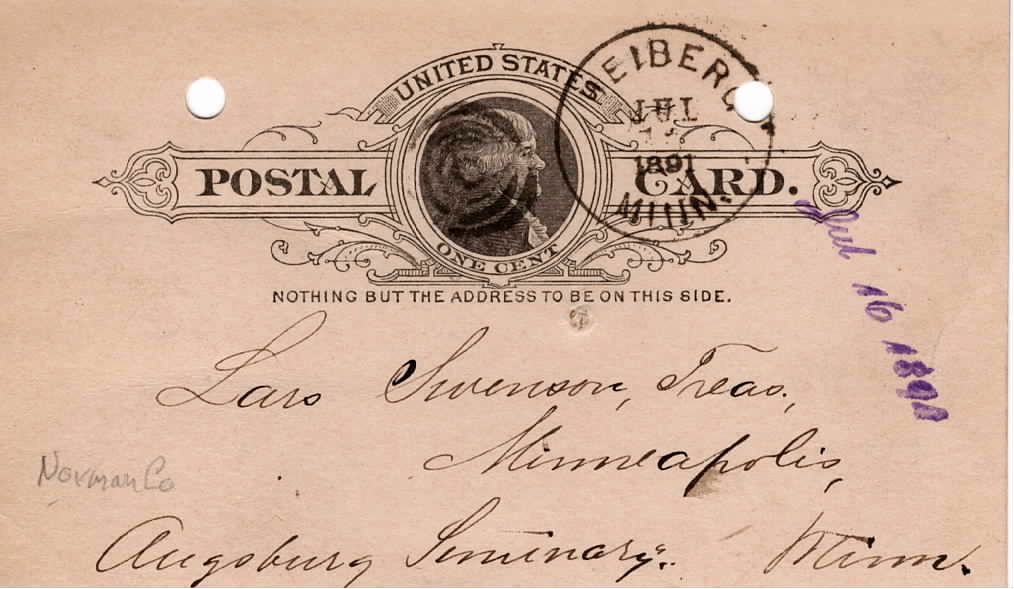 UNITED STATES
POSTAL CARD.
ONE CENT
NOTHING BUT THE ADDRESS TO BE ON THIS SIDE.
EIBERG
JUL
1891
MINN.
Jul 16 1891
Lars Swenson, Treas.,
Minneapolis,
Norman Co
Augsburg Seminary. Minn.